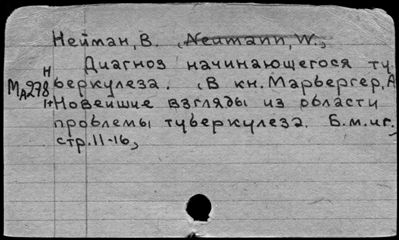 Нейман, В. (Neumann, W.)
Диагноз начинающегося ту
беркулеза. (В кн. Марбергер, А
Новейшие взгляды из области
проблемы туберкулеза. Б.м.иг.
стр. 11-16)
Н
МА278
1+